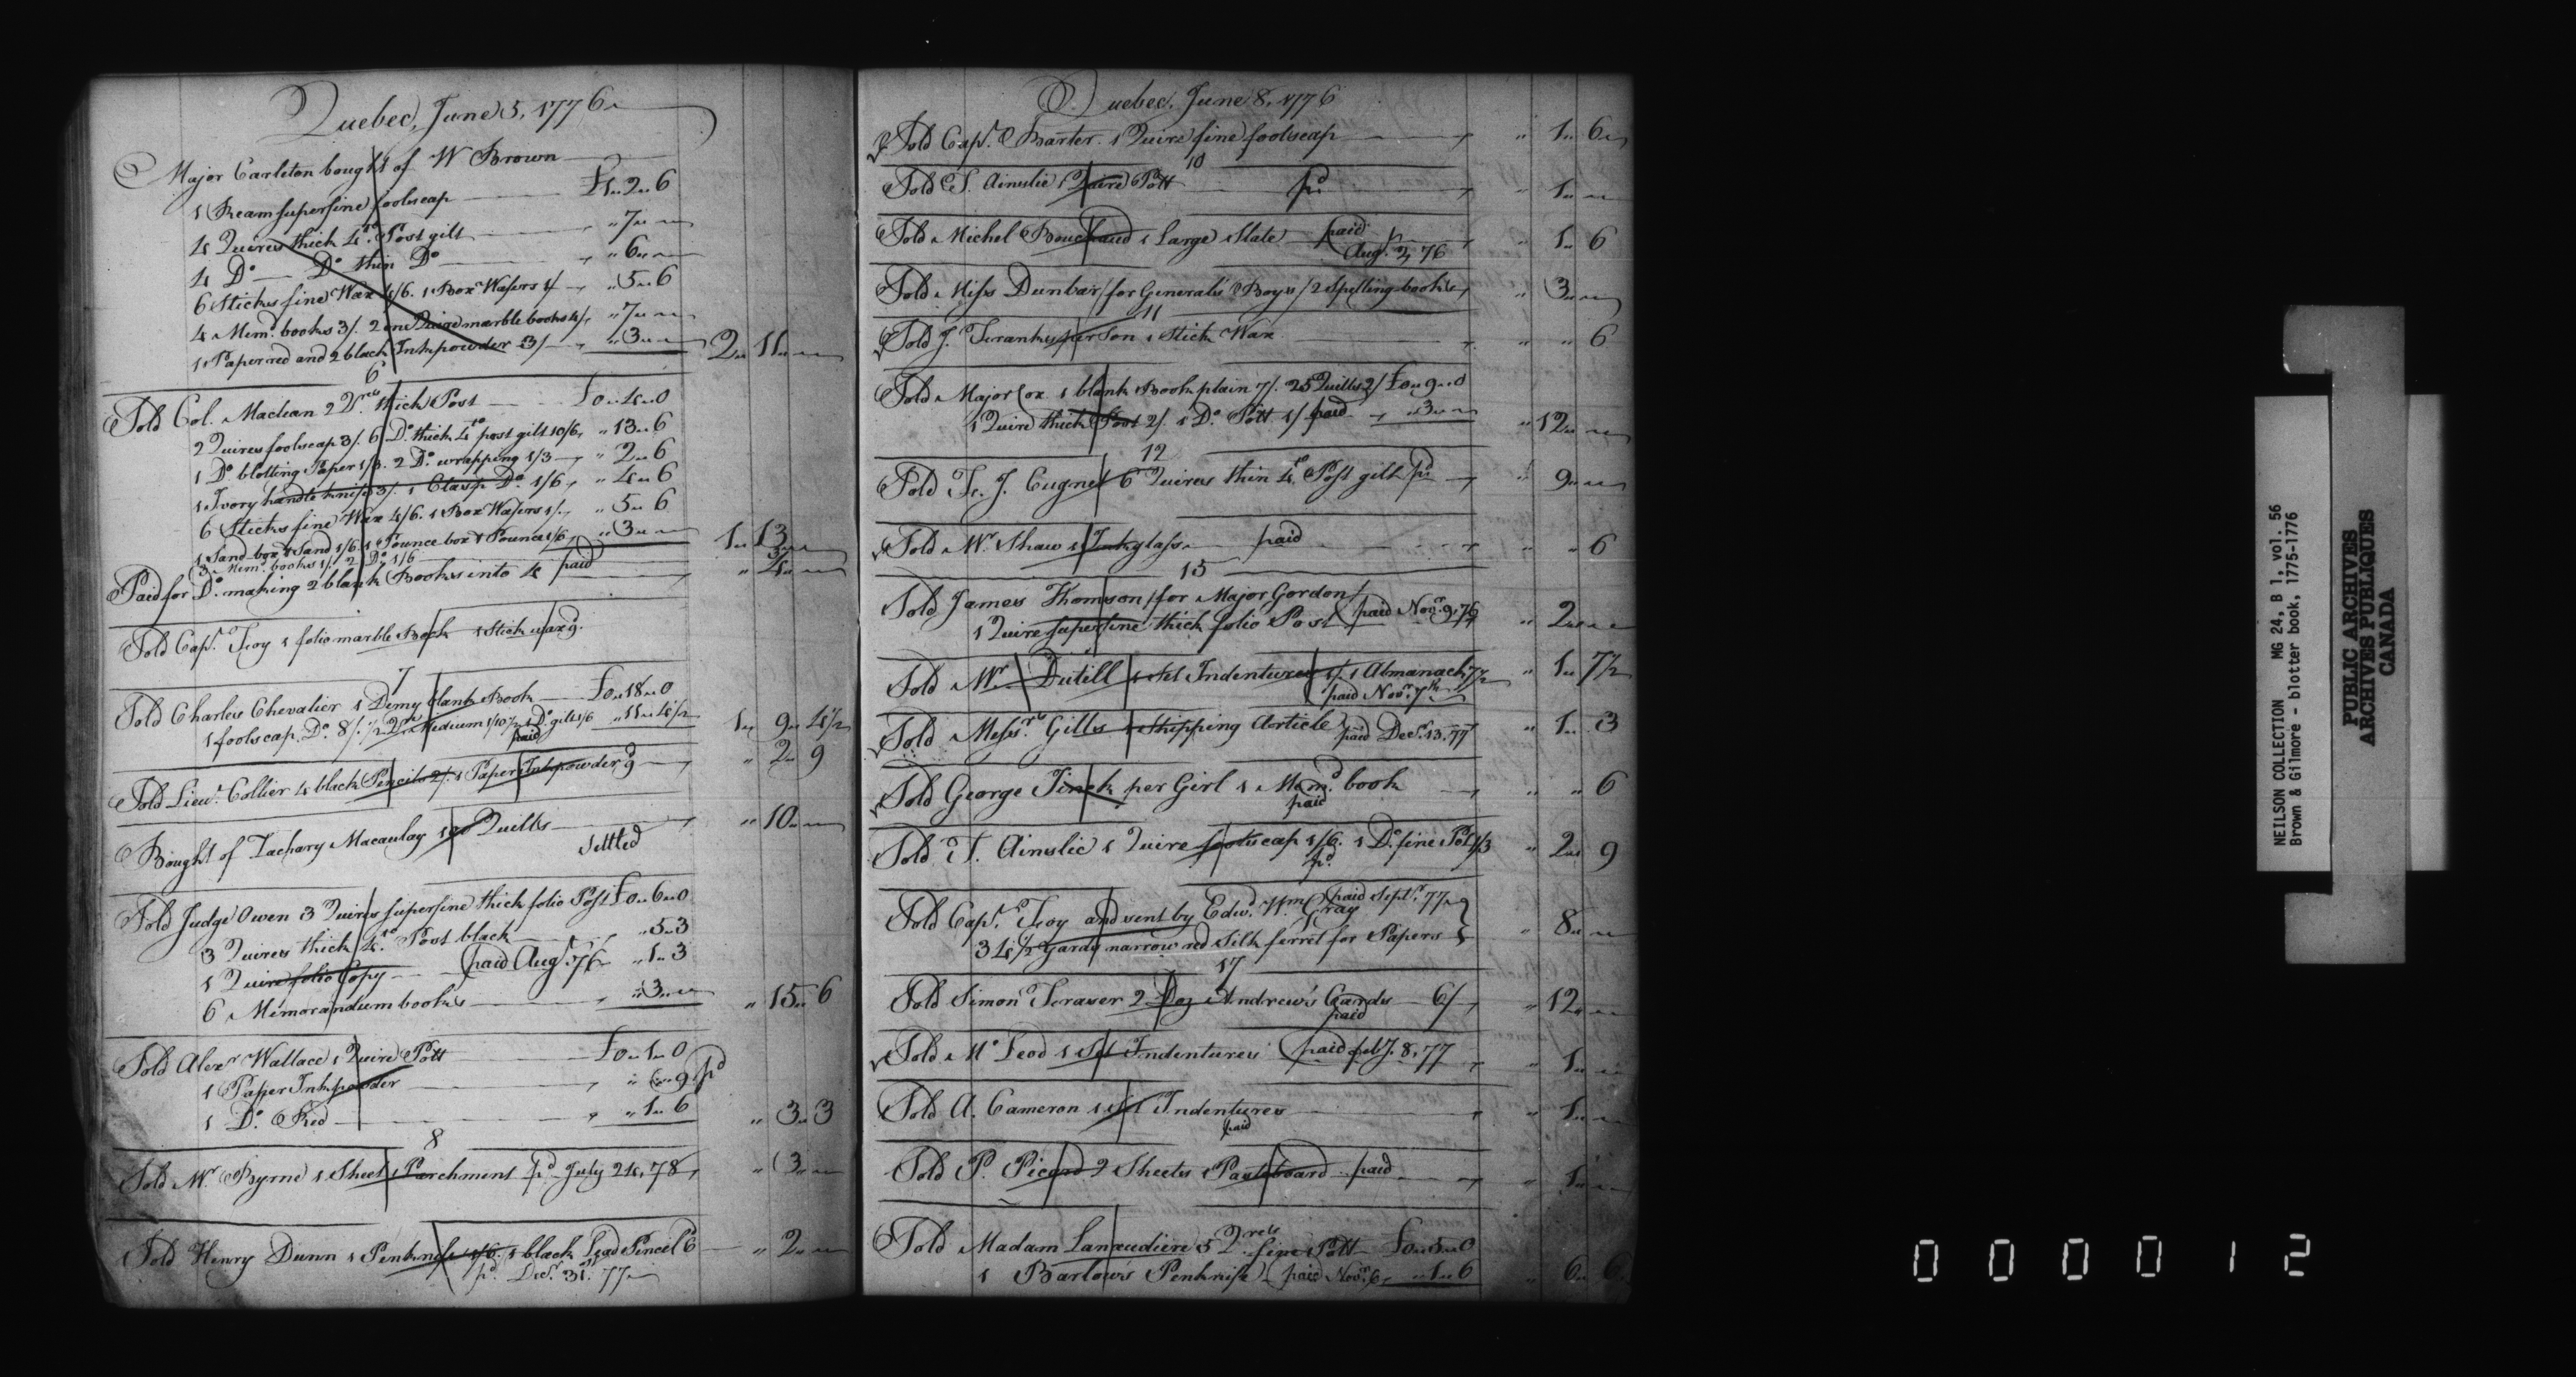 Quebec, June 5, 1776
Major Carleton bought of W Brown
1 Ream superfine foolscap £1..2..6
4 Quires thick 4to Post gilt " 7 "
4 Do Do thin Do " 6 "
6 Sticks fine Wax 4/6. 1 Box Wafers 1/ " 5..6
4 Mem. books 3/. 2 one Quire marble books 4/ " 7 "
1 Paper red and 2 black Inkpowder 3/ " 3 " 2..11 "
6
Sold Col. Maclean 2 Qres thick Post £0..4..0
2 Quires foolscap 3/. 6 Do thick 4to post gilt 10/6 " 13..6
1 Do blotting Paper 1/3. 2 Do wrapping 1/3 " 2..6
1 Ivory handle knife 3/. 1 Clasp Do 1/6 " 4..6
6 Sticks fine Wax 4/6. 1 Box Wafers 1/ " 5..6
1 Sand box & Sand 1/6. 1 Pounce box & Pounce 1/6 " 3 " 1..13 "
3 Mem. books 1/. 2 Do 1/6 3 "
Paid for Do making 2 blank Books into 4 paid " 4 "
Sold Capt. Foy 1 folio marble Book 1 Stick wax 9.
7
Sold Charles Chevalier 1 Demy blank Book £0..18..0
1 foolscap Do 8/. 1/2 Qr Medium 1/10½ 1 Do gilt 1/6 " 11..4½ 1..9..4½
paid
Sold Lieut. Collier 4 black Pencils 2/. 1 Paper Inkpowder 9 " 2..9
Bought of Zachary Macaulay 100 Quills " 10 "
settled
Sold Judge Owen 3 Quires superfine thick folio Post £0..6..0
3 Quires thick 4to Post black " 5..3
1 Quire folio Copy (paid Aug. 76 " 1..3
6 Memorandum books " 3 " " 15..6
Sold Alexr Wallace 1 Quire Pott £0..1..0
1 Paper Inkpowder " " 9 pd
1 Do Red " 1..6 " 3..3
8
Sold Mr. Byrne 1 Sheet Parchment pd July 24, 78 " 3 "
Sold Henry Dunn 1 Penknife 1/6. 1 black Lead Pencil 6 " 2 "
pd Decr 31st 77
Quebec, June 8, 1776
Sold Capt. Barter 1 Quire fine foolscap " 1..6
10
Sold T. Ainslie 1 Quire Pott pd " 1 "
Sold Michel Bouchaud 1 Large Slate paid " 1..6
Augt. 2, 76
Sold Miss Dunbar / for Generals Boys / 2 Spelling books " 3 "
11
Sold J. Franks per Son 1 Stick Wax " " 6
Sold Major Cox 1 blank Book plain 7/. 25 Quills 2/ £0..9..0
1 Quire thick Post 2/. 1 Do Pott 1/ paid " 3 " " 12 "
12
Sold Fr. J. Cugnet 6 Quires thin 4to Post gilt pd " 9 "
Sold Mr. Shaw 1 Inkglass paid " " 6
15
Sold James Thomson / for Major Gordon /
1 Quire superfine thick folio Post (paid Novr. 9, 76 " 2 "
Sold Mr. Dutill 1 set Indentures 1/. 1 Almanach 7½ " 1..7½
(paid Novr. 7th
Sold Messrs. Gills 1 Shipping Article paid Decr. 13. 77 " 1..3
Sold George Jinck per Girl 1 Memd. book " " 6
paid
Sold T. Ainslie 1 Quire foolscap 1/6. 1 Do fine Pott 1/3 " 2..9
pd
Sold Capt. Foy and sent by Edwd. Wm Gray (paid Septr. 77
34½ Yards narrow red Silk ferret for Papers " 8 "
17
Sold Simon Fraser 2 Doz Andrew's Cards 6/ " 12 "
paid
Sold Mc Leod 1 Set Indentures (paid feby. 8, 77 " 1 "
Sold A. Cameron 1 set Indentures " 1 "
paid
Sold P. Picard 2 Sheets Pasteboard paid " 1 "
Sold Madam Lanaudiere 5 Qres fine Pott £0..5..0
1 Barlow's Penknife (paid Novr. 6 " 1..6 " 6..6
NEILSON COLLECTION MG 24, B 1, vol. 56
Brown & Gilmore - blotter book, 1775-1776
PUBLIC ARCHIVES
ARCHIVES PUBLIQUES
CANADA
000012